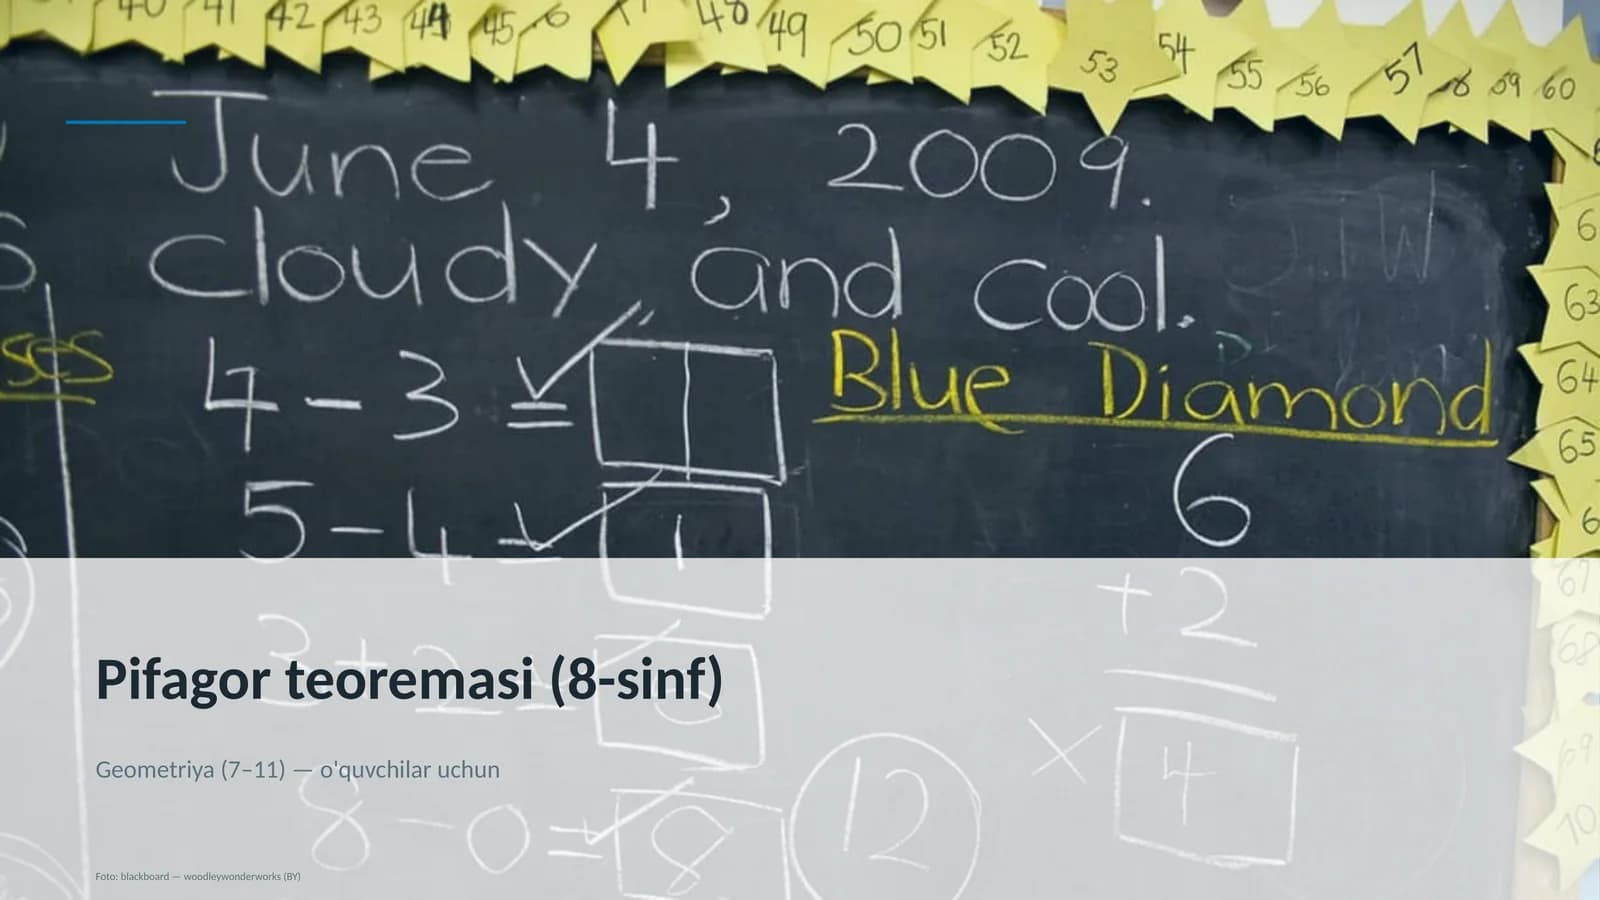 40 41 42 43 44 45 48 49 50 51 52 53 54 55 56 57 58 59 60
June 4, 2009.
cloudy, and cool.
ses
4 - 3 =
Blue Diamond
63
64
65
5 - 4 = 1
6
+ 2
67
68
3 + 2 =
Pifagor teoremasi (8-sinf)
× 4
69
Geometriya (7–11) — o'quvchilar uchun
8 - 0 = 8
12
70
Foto: blackboard — woodleywonderworks (BY)